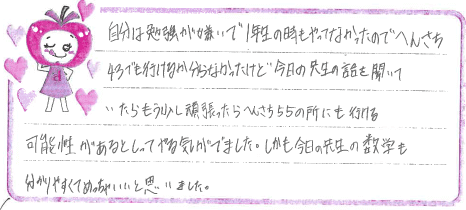 自分は勉強が嫌いで1年生の時もやってなかったのでへんさち
43でも行けるか分らなかったけど今日の先生の話を聞いて
いたらもう少し頑張ったらへんさち55の所にも行ける
可能性があるとしってやる気がでました。しかも今日の先生の数学も
分かりやすくてめっちゃいいと思いました。